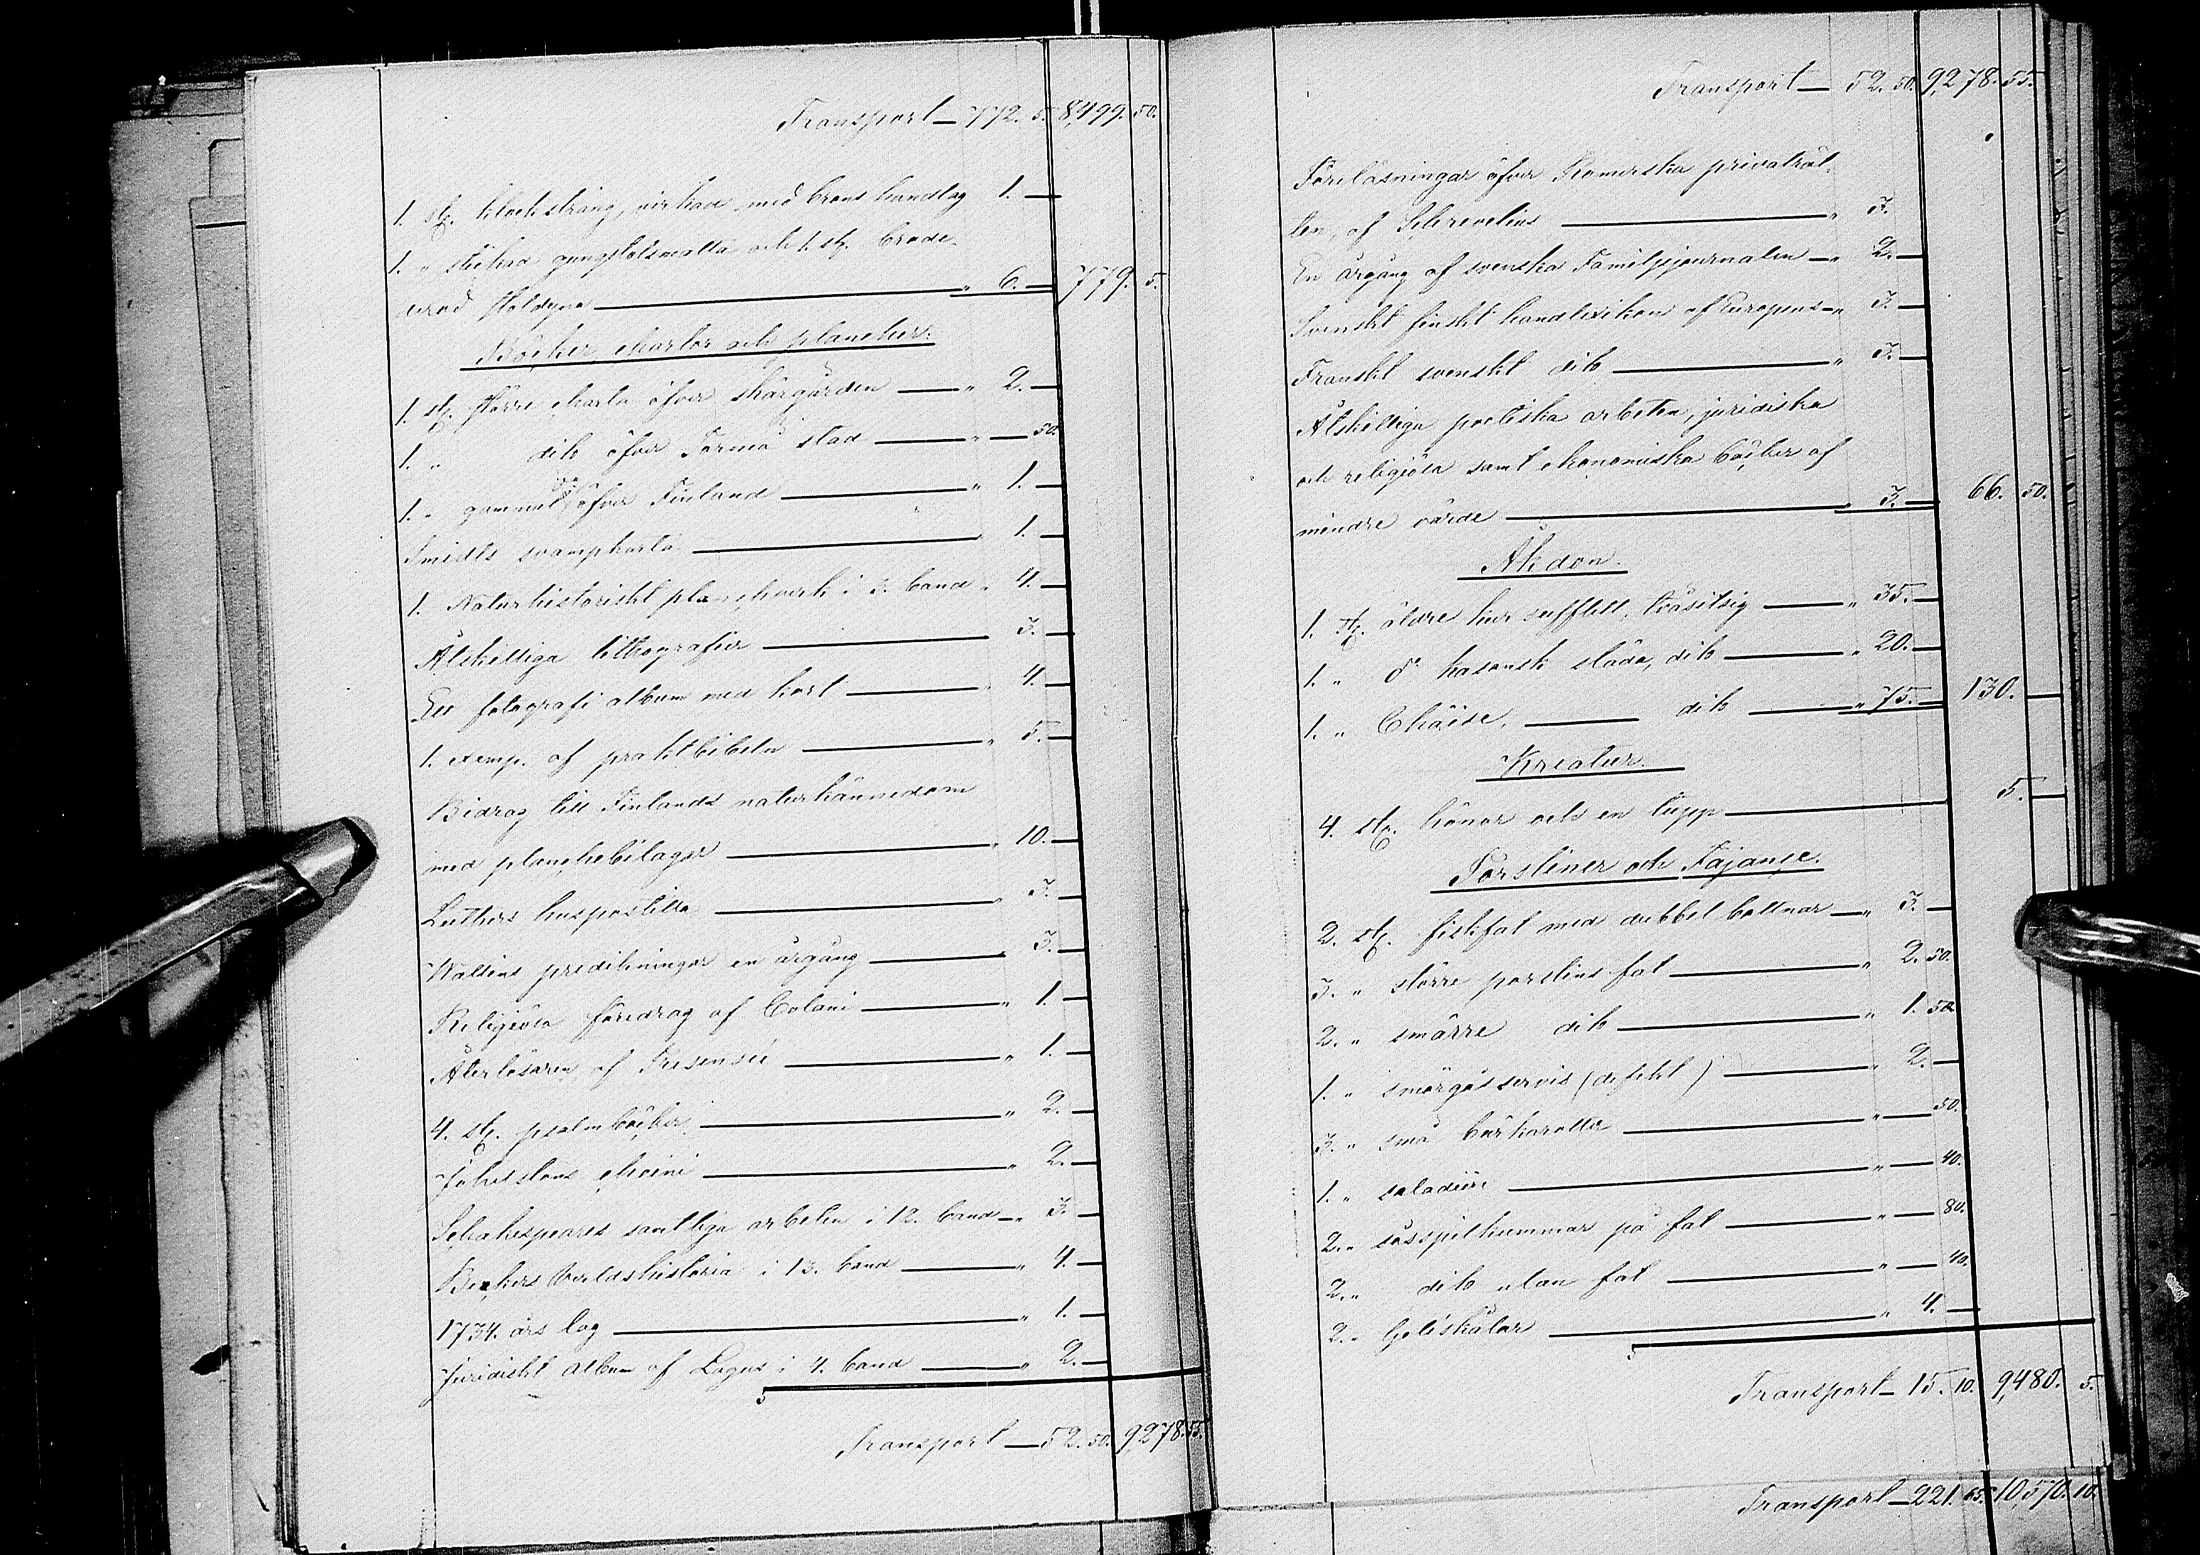 Transport — 772. 5. 8,499. 50.
1. st. klocksträng, virkad med brons handtag 1. —
1. " stickad gungstolsmatta och 1. st. brode-
rad stoldyna — " 6. — 779. 5.
Böcker, chartor och plancher.
1. st. större charta öfver skärgården — " 2. —
1. " dito öfver Borgå stad — " — 50.
1. " gammal do öfver Finland — " 1. —
Smidts svampkarta — " 1. —
1. Naturhistoriskt planchverk i 3. band " 4. —
Åtskilliga litografier — 3. —
Ett fotografi album med kort — " 4. —
1. exemp. af praktbibeln — " 5. —
Bidrag till Finlands naturkännedom
med planchebilagor — " 10. —
Luthers huspostilla — " 3. —
Wallins predikningar en årgång — " 3. —
Religiösa föredrag af Colani — " 1. —
Återlösaren af Pressensé — " 1. —
4. st. psalmböcker — " 2. —
— " 2. —
Schakespeares samtliga arbeten i 12. band — " 3. —
Beckers verldshistoria i 13. band — " 4. —
1734. års lag — " 1. —
Juridiskt album af Lagus i 4. band — " 2. —
Transport — 52. 50. 9,278. 55.
Transport — 52. 50. 9,278. 55.
Föreläsningar öfver Romerska privaträt-
ten, af Schrevelius — " 3.
En årgång af svenska Familjejournalen — " 2. —
Svenskt finskt handlexikon af Europeus — " 3. —
Franskt svenskt dito — " 3. —
Åtskilliga poetiska arbeten, juridiska
och religiösa samt ekonomiska böcker af
mindre värde — " 3. — 66. 50.
Åkdon.
1. st. äldre kur sufflett, tvåsitsig — " 35. —
1. " do kasansk släde, dito — " 20. —
1. " Chäise, — dito — " 75. — 130. —
Kreatur.
4. st. hönor och en tupp — 5. —
Porsliner och Fajance.
2. st. fiskfat med dubbel bottnar — " 3. —
3. " större porslins fat — " 2. 50.
2. " smärre dito — " 1. 50.
1. " smörgåsservis (defekt) — " 2. —
3. " små bärkarotter — " — 50.
1. " saladiere — " — 40.
2. " såsspilkummar på fat — " — 80.
2. " dito utan fat — " — 40.
2. " Geléskålar — " 4. —
Transport — 15. 10. 9,480. 5.
Transport — 221. 65. 10,570. 10.